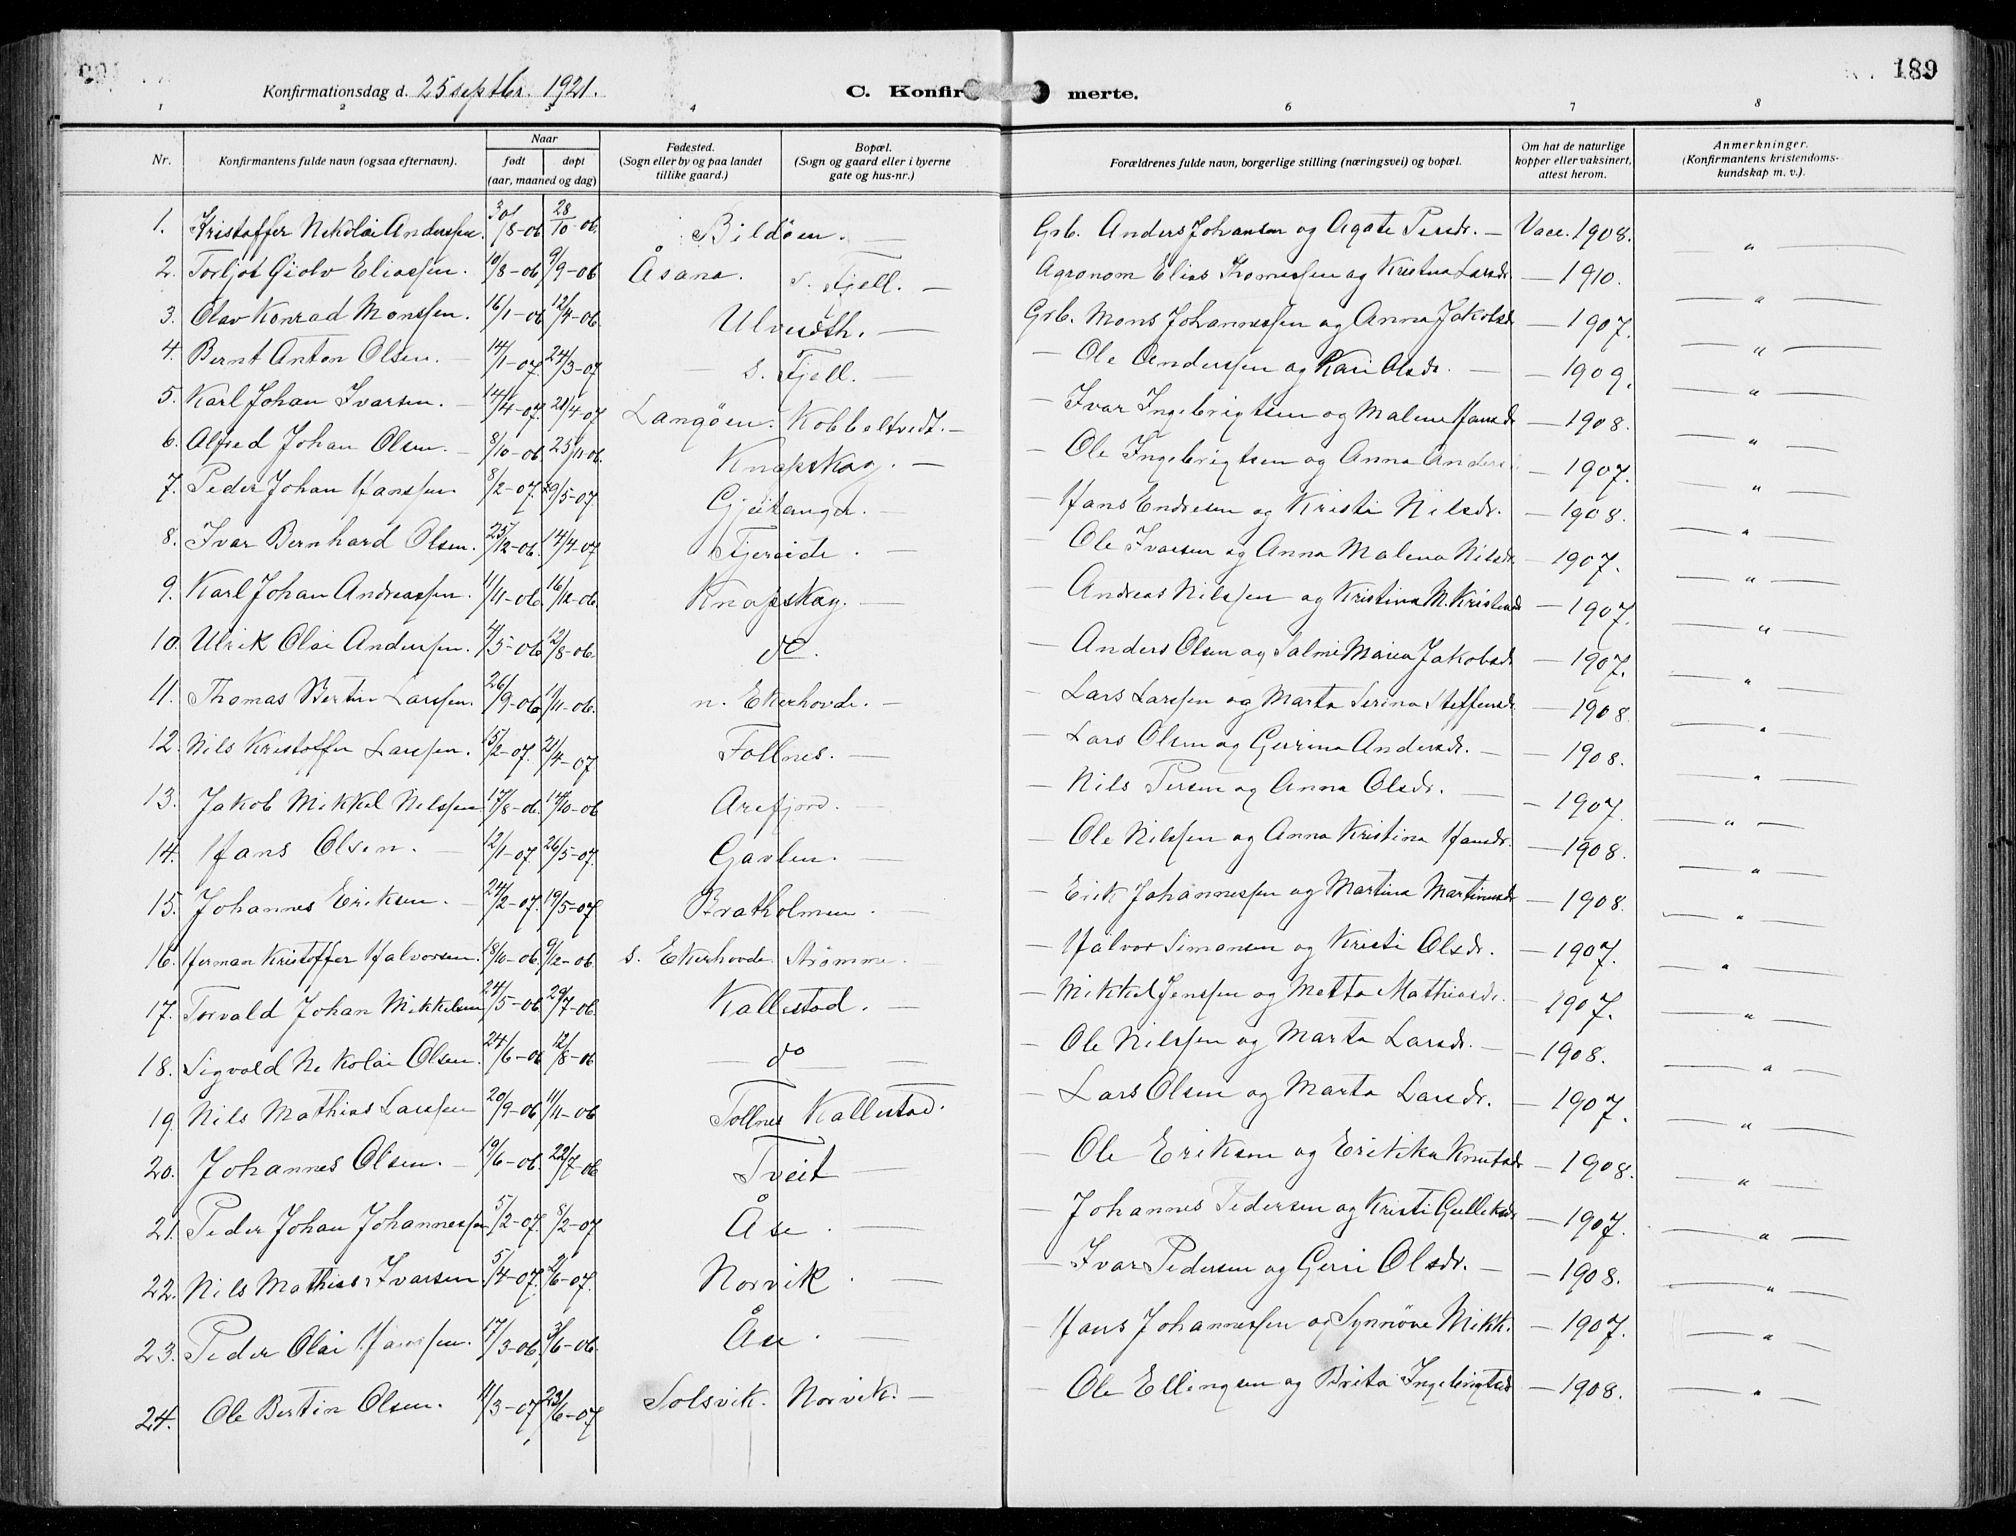 189
Konfirmationsdag d. 25 septbr. 1921.
C. Konfirmerte.
1 2 3 4 6 7 8
Nr. Konfirmantens fulde navn (ogsaa efternavn). Naar født døpt (aar, maaned og dag) Fødested. (Sogn eller by og paa landet tillike gaard.) Bopæl. (Sogn og gaard eller i byerne gate og hus-nr.) Forældrenes fulde navn, borgerlige stilling (næringsvei) og bopæl. Om hat de naturlige kopper eller vaksinert, attest herom. Anmerkninger. (Konfirmantens kristendoms-kundskap m. v.).
1. Kristoffer Nikolai Anderssen. 30/8-06 28/10-06. Bildøen. — Grb. Anders Johansen og Agate Persdr. — Vacc. 1908. "
2. Torljot Gjolv Eliassen. 10/8-06 9/9-06 Åsane. s. Fjell. — Agronom Elias Tomessen og Kristina Larsdr — 1910. "
3. Olav Konrad Monssen. 16/1-06 12/4-06. Ulveseth. — Grb. Mons Johannessen og Anna Jakobsdr — 1907. "
4. Bernt Anton Olsen. — 14/1-07. 24/3-07 — s. Fjell. — — Ole Anderssen og Kari Olsdr. — — 1909. "
5. Karl Johan Ivarsen. — 14/4-07. 21/4-07 Langøen. Kobbeltvedt. — — Ivar Ingebrigtsen og Malene Hansdr — 1908. "
6. Alfred Johan Olsen. — 8/10-06. 25/11-06. Knapskog. — — Ole Ingebrigtsen og Anna Anders — 1907. "
7. Peder Johan Hanssen. 8/2-07. 19/5-07. Gjeitanger. — — Hans Endresen og Kristi Nilsdr. — 1908. "
8. Ivar Bernhard Olsen. 25/12-06. 14/4-07 Fjereide. — — Ole Ivarsen og Anna Malena Nilsdr — 1907. "
9. Karl Johan Andreassen. 11/11-06. 16/12-06. Knapskog. — — Andreas Nilssen og Kristina M. Kristensdr — 1907. "
10. Ulrik Olai Anderssen. 4/5-06 12/8-06. do. — Anders Olsen og Salmi Maria Jakobsdr — 1907. "
11. Thomas Bertin Larssen. 26/9-06 11/11-06. n. Ekerhovde. — — Lars Larssen og Marta Serina Steffensdr — 1908. "
12. Nils Kristoffer Larssen. 15/2-07. 21/4-07 Follnes. — — Lars Olsen og Gurina Andersdr. — — 1908. "
13. Jakob Mikkel Nilssen 17/8-06. 14/10-06 Arefjord. — — Nils Persen og Anna Olsdr. — — 1907. "
14. Hans Olsen. — 12/1-07. 26/5-07. Gavlen. — — Ole Nilssen og Anna Kristina Hansdr. — 1908. "
15. Johannes Eriksen. — 24/2-07. 19/5-07 Bratholmen. — — Erik Johannessen og Martina Martinusdr — 1908. "
16. Herman Kristoffer Halvorsen. 18/10-06. 9/12-06. s. Ekerhovde. Strømme. — Halvor Simonsen og Kristi Olsdr. — 1907. "
17. Torvald Johan Mikkelsen 24/5-06. 29/7-06. Kallestad. — — Mikkel Jenssen og Metta Mathiasdr. — 1907. "
18. Sigvald Nikolai Olsen. 24/6-06 12/8-06 — do — — Ole Nilssen og Marta Larsdr. — — 1908. "
19. Nils Mathias Larssen 20/9-06 11/11-06 Follnes Kallestad. — Lars Olsen og Marta Larsdr. — 1907. "
20. Johannes Olsen. — 19/6-06. 22/7-06 Tveit — Ole Eriksen og Erikka Knutsdr — 1908. "
21. Peder Johan Johannessen 5/2-07. 8/2-07 Åse. — — Johannes Pedersen og Kristi Gulleksdr — 1907. "
22. Nils Mathias Ivarsen 5/4-07. 2/6-07. Norvik. — — Ivar Pedersen og Geri Olsdr. — — 1908. "
23. Peder Olai Hanssen. 17/3-06. 3/6-06. Åse. — — Hans Johannessen og Synnøve Mikk. — 1907. "
24. Ole Bertin Olsen. 11/3-07 23/6-07 Solsvik. Norvik. — — Ole Ellingsen og Brita Ingebrigtsdr — 1908. "